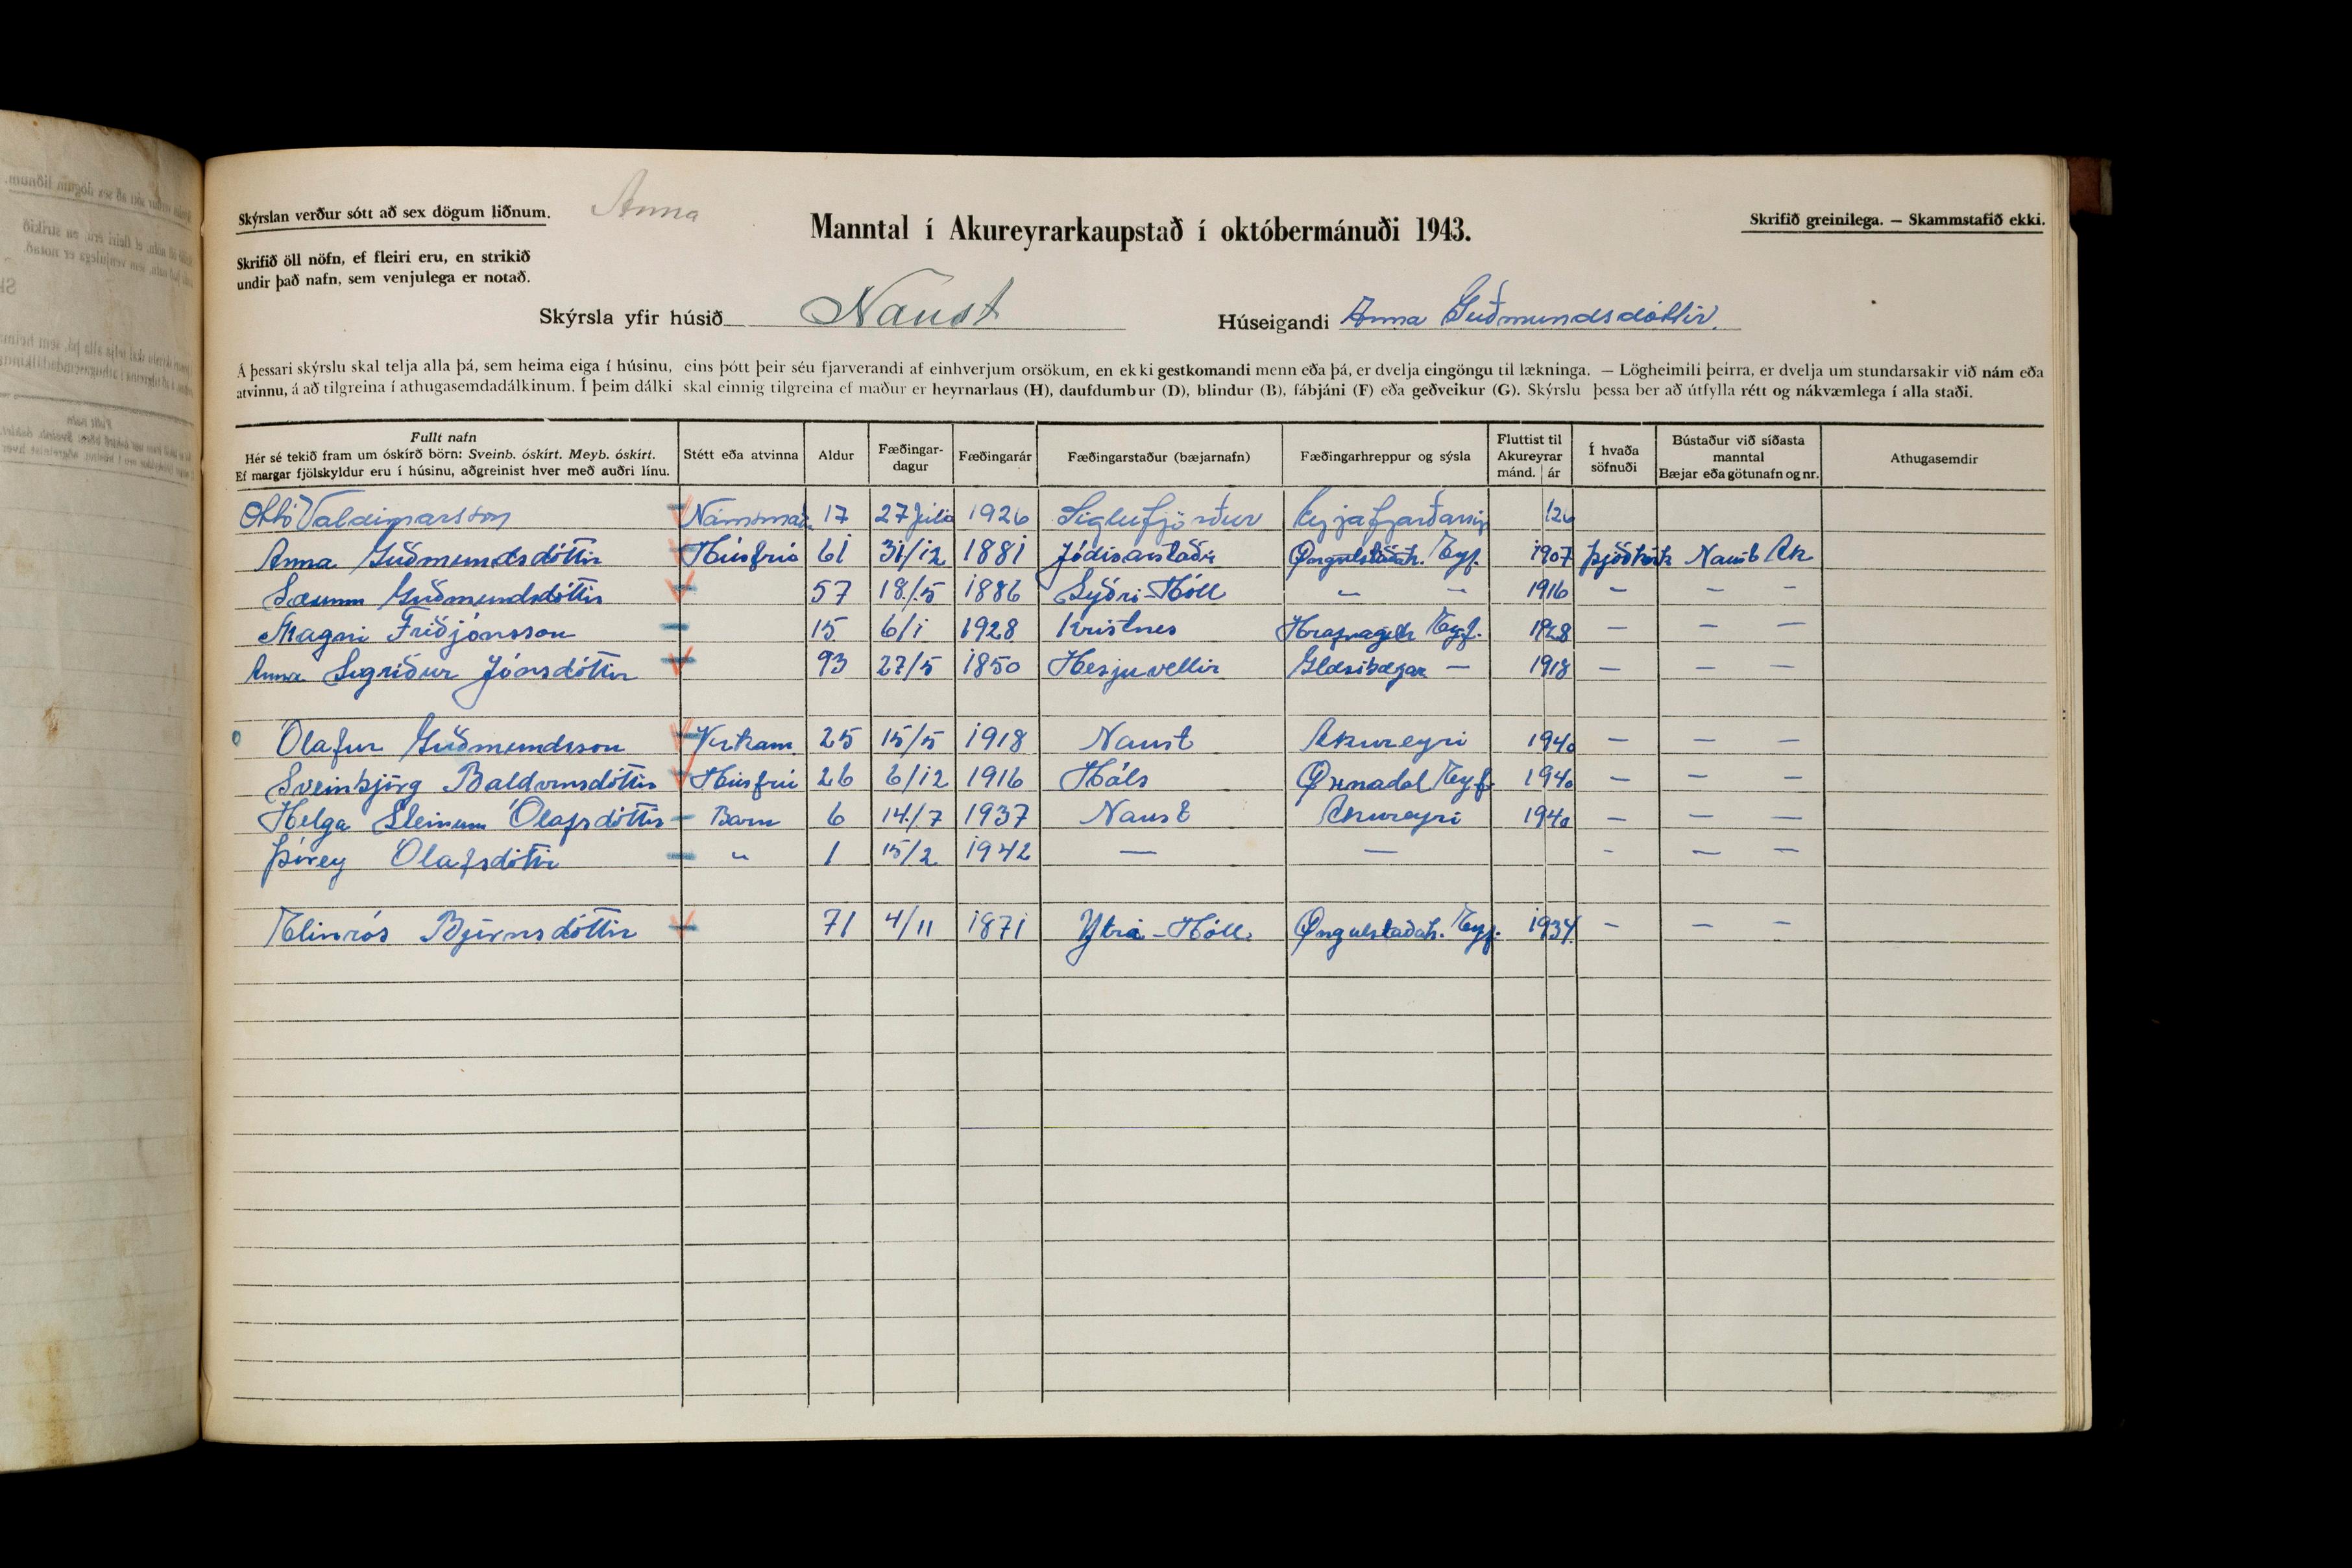 Skýrslan verður sótt að sex dögum liðnum.
Anna
Manntal í Akureyrarkaupstað í októbermánuði 1943.
Skrifið greinilega. — Skammstafið ekki.
Skrifið öll nöfn, ef fleiri eru, en strikið
undir það nafn, sem venjulega er notað.
Skýrsla yfir húsið Naust Húseigandi Anna Guðmundsdóttir.
Á þessari skýrslu skal telja alla þá, sem heima eiga í húsinu, eins þótt þeir séu fjarverandi af einhverjum orsökum, en ekki gestkomandi menn eða þá, er dvelja eingöngu til lækninga. — Lögheimili þeirra, er dvelja um stundarsakir við nám eða
atvinnu, á að tilgreina í athugasemdadálkinum. Í þeim dálki skal einnig tilgreina ef maður er heyrnarlaus (H), daufdumbur (D), blindur (B), fábjáni (F) eða geðveikur (G). Skýrslu þessa ber að útfylla rétt og nákvæmlega í alla staði.
Fullt nafn
Hér sé tekið fram um óskírð börn: Sveinb. óskírt. Meyb. óskírt.
Ef margar fjölskyldur eru í húsinu, aðgreinist hver með auðri línu.
Stétt eða atvinna
Aldur
Fæðingar-
dagur
Fæðingarár
Fæðingarstaður (bæjarnafn)
Fæðingarhreppur og sýsla
Fluttist til
Akureyrar
mánd. ár
Í hvaða
söfnuði
Bústaður við síðasta
manntal
Bæjar eða götunafn og nr.
Athugasemdir
Ottó Valdimarsson Námsmað. 17 27 júlí 1926 Siglufjörður Eyjafjarðarsýs 126
Anna Guðmundsdóttir Húsfrú 61 31/12 1881 Jódisarstaðir Öngulstaðah. Eyf. 1907 Þjóðkirk Naust Ak
Sæunn Guðmundsdóttir 57 18/5 1886 Syðri-Hóll — — 1916 — — —
Magni Friðjónsson 15 6/1 1928 Kristnes Hrafnagilh Eyf. 1928 — — —
Anna Sigríður Jónsdóttir 93 27/5 1850 Hesjuvellir Glæsibæjar — 1918 — — —
Ólafur Guðmundsson Verkam. 25 15/5 1918 Naust Akureyri 1940 — — —
Sveinbjörg Baldvinsdóttir Húsfrú 26 6/12 1916 Háls Öxnadal Eyf. 1940 — — —
Helga Steinunn Ólafsdóttir Barn 6 14/7 1937 Naust Akureyri 1940 — — —
Þórey Ólafsdóttir " 1 15/2 1942 — — - — —
Elinrós Björnsdóttir 71 4/11 1871 Ytri-Hóll. Öngulstaðah. Eyf. 1934. — — —